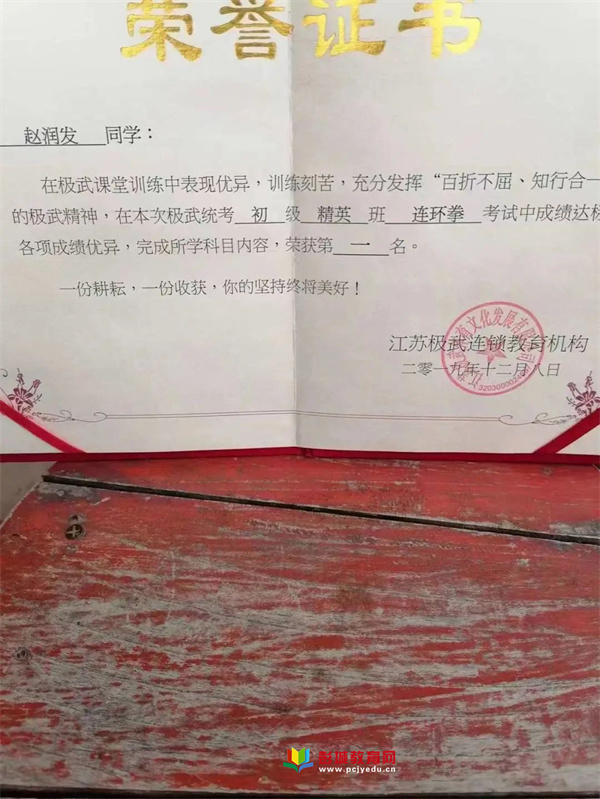 荣誉证书
赵润发 同学：
在极武课堂训练中表现优异，训练刻苦，充分发挥“百折不屈、知行合一
的极武精神，在本次极武统考 初 级 精英 班 连环拳 考试中成绩达标
各项成绩优异，完成所学科目内容，荣获第 一 名。
一份耕耘，一份收获，你的坚持终将美好！
江苏极武连锁教育机构
二零一九年十二月八日
www.pcjyedu.cn